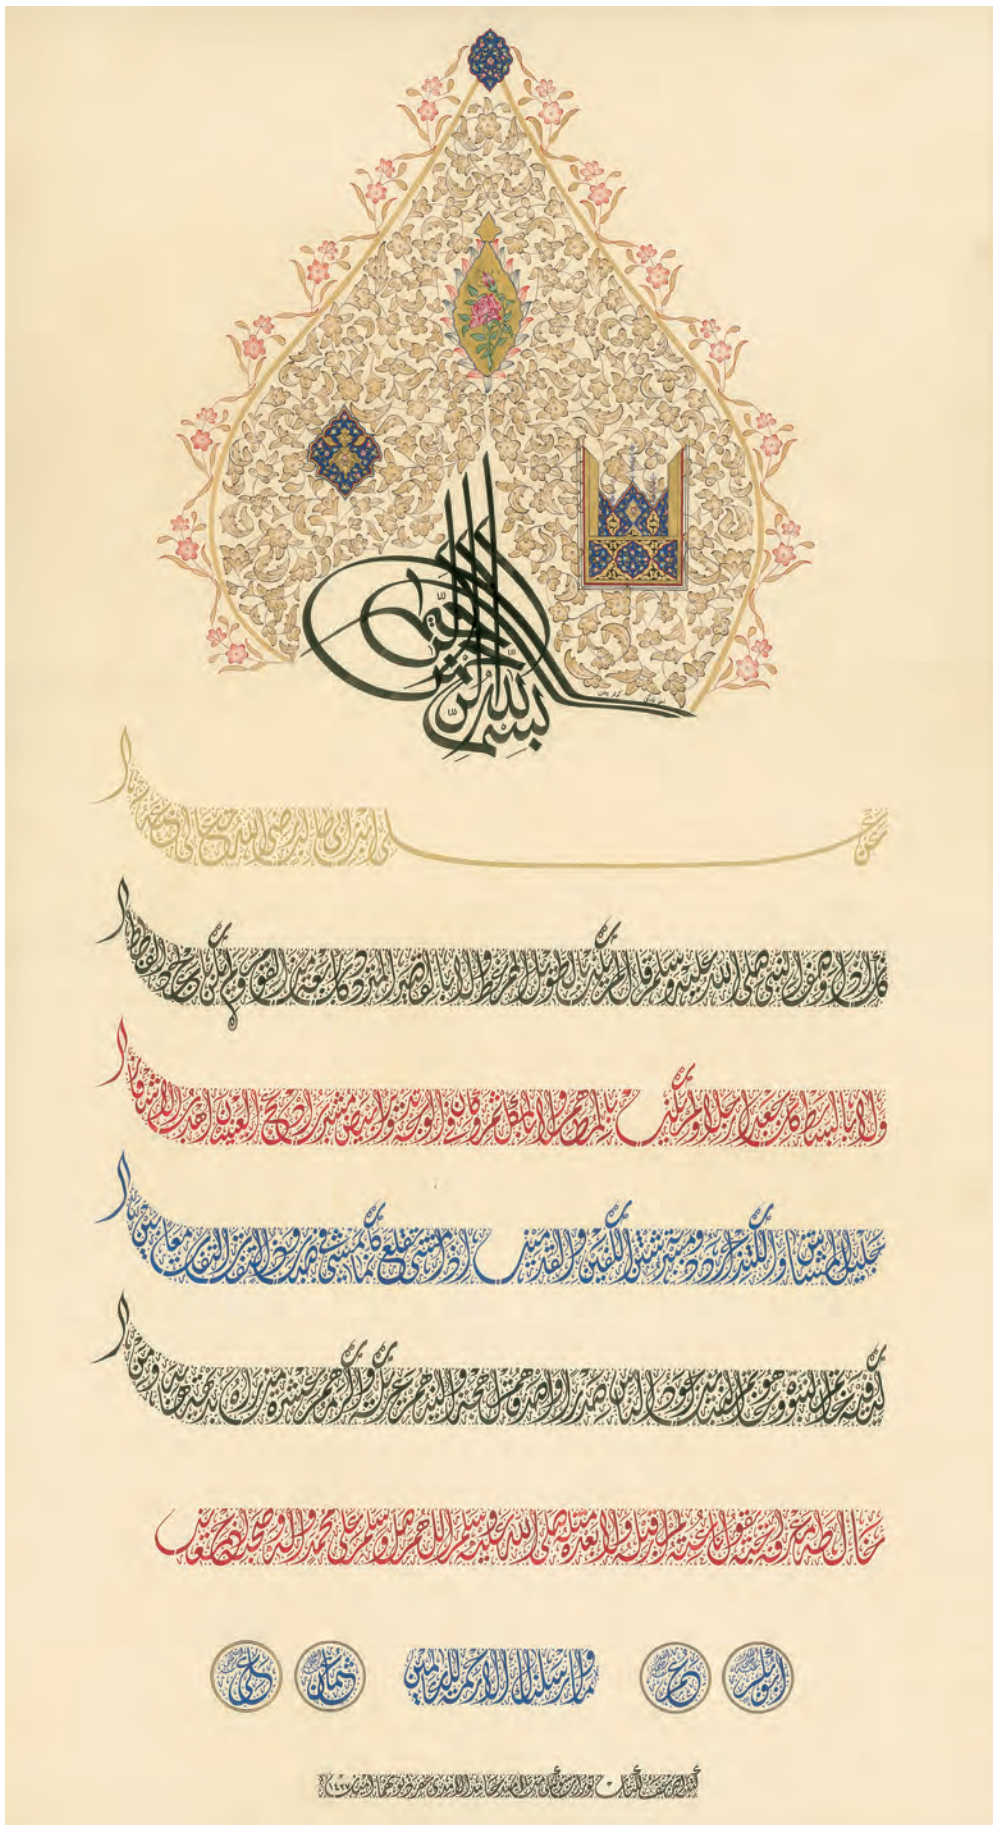 بسم الله الرحمن الرحيم
عن علي ابن ابي طالب رضى الله تعالى عنه
كان اذا وصف النبي صلى الله عليه وسلم قال لم يكن بالطويل الممغط ولا بالقصير المتردد كان ربعة من القوم ولم يكن بالجعد القطط
ولا بالسبط كان جعدا رجلا ولم يكن بالمطهم ولا بالمكلثم وكان في الوجه تدوير ابيض مشرب ادعج العينين اهدب الاشفار
جليل المشاش والكتد اجرد ذو مسربة شثن الكفين والقدمين اذا مشى تقلع كانما يمشي في صبب واذا التفت التفت معا بين
كتفيه خاتم النبوة وهو خاتم النبيين اجود الناس صدرا واصدقهم لهجة والينهم عريكة واكرمهم عشرة من رآه بديهة هابه ومن
خالطه معرفة احبه يقول ناعته لم ار قبله ولا بعده مثله صلى الله عليه وسلم اللهم صل وسلم على محمد وآله وصحبه اجمعين
ابو بكر عمر وما ارسلناك الا رحمة للعالمين عثمان علي
١٤٢٧